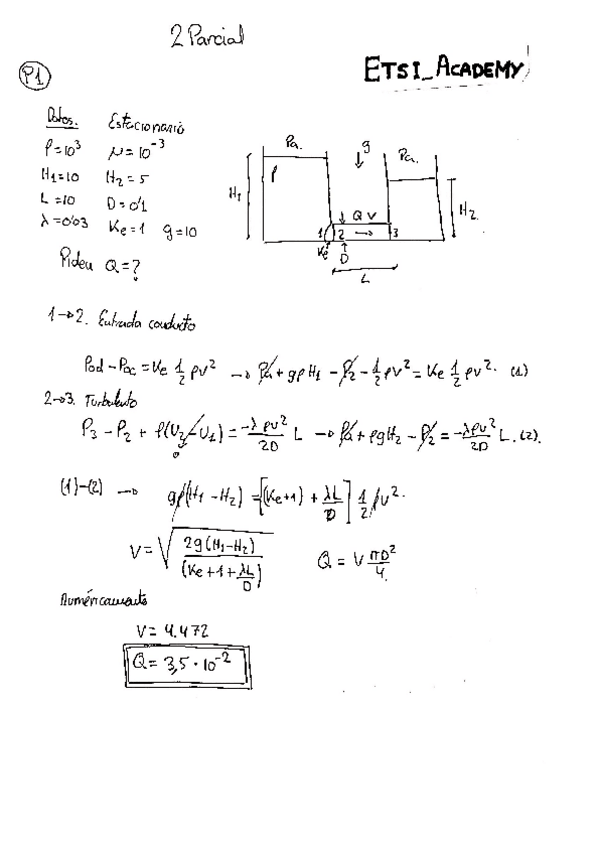 2 Parcial
P1
ETSI_ACADEMY
Datos. Estacionario
ρ=10³ μ=10⁻³
H1=10 H2=5
L=10 D=0'1
λ=0'03 Ke=1 g=10
Piden Q=?
Pa. g Pa.
ρ
H1 H2
Q V
1 2 → 3
Ke D
L
1→2. Entrada conducto
Pod - Poc = Ke 1/2 ρv² → Pa + gρH1 - P2 - 1/2 ρv² = Ke 1/2 ρv². (1)
2→3. Turbulento
P3 - P2 + ρ(U2 - U1) = -λρv²/2D L → Pa + ρgH2 - P2 = -λρv²/2D L. (2).
0
(1)-(2) → gρ(H1 - H2) = [(Ke+1) + λL/D] 1/2 ρv².
V = √(2g(H1-H2)/(Ke+1+λL/D)) Q = V πD²/4.
Numéricamente
V = 4.472
Q = 3,5·10⁻²